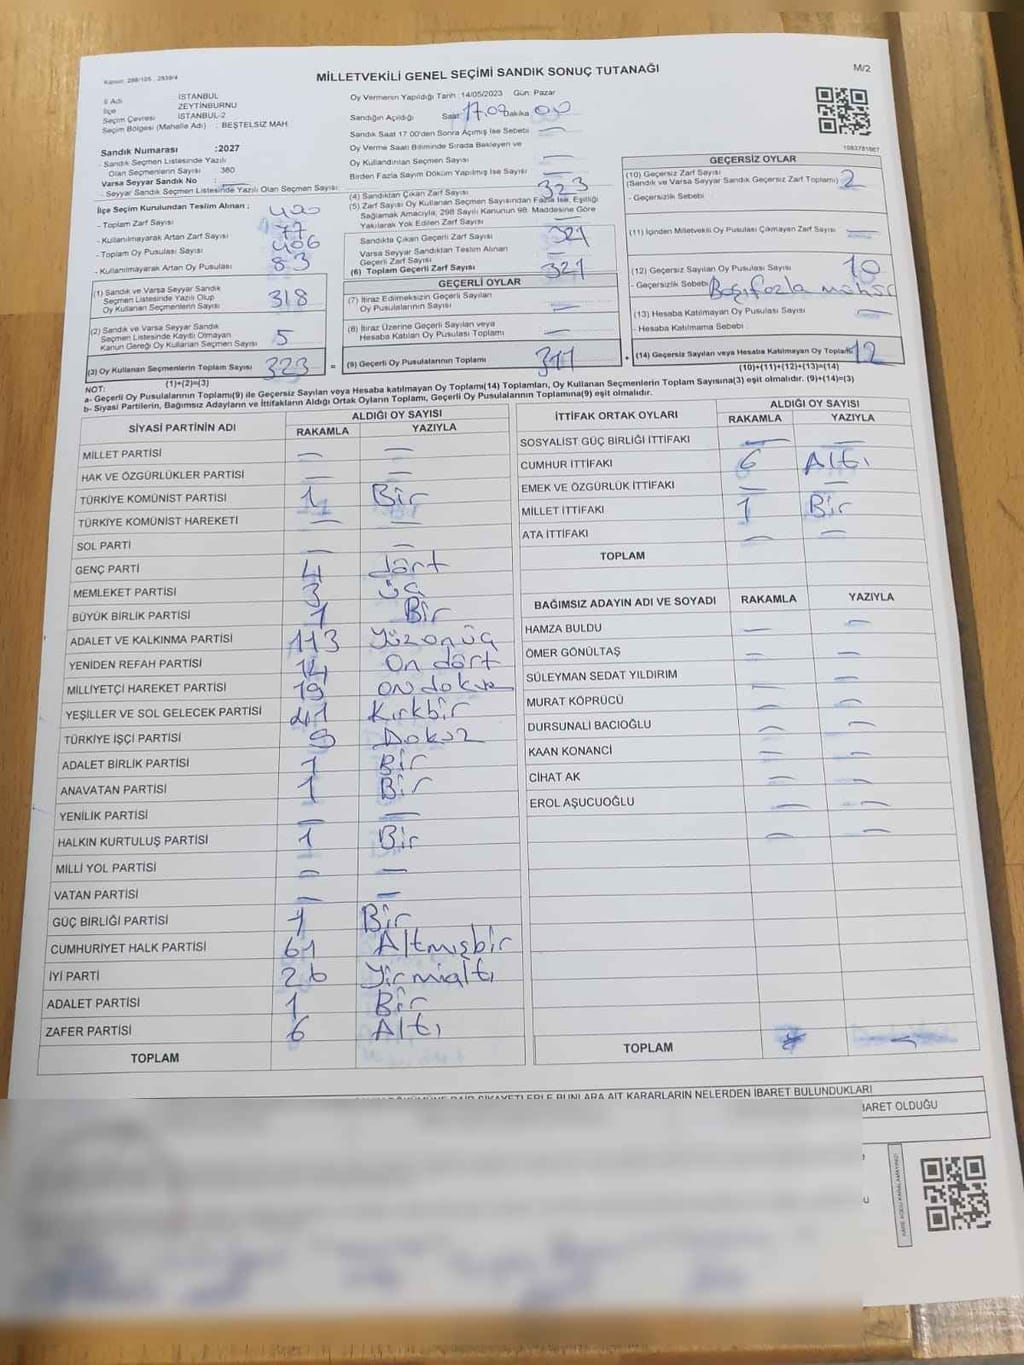 Kanun: 298/105, 2839/4
MİLLETVEKİLİ GENEL SEÇİMİ SANDIK SONUÇ TUTANAĞI
M/2
İl Adı : İSTANBUL
İlçe : ZEYTİNBURNU
Seçim Çevresi : İSTANBUL-2
Seçim Bölgesi (Mahalle Adı) : BEŞTELSİZ MAH.
Sandık Numarası :2027
- Sandık Seçmen Listesinde Yazılı
Olan Seçmenlerin Sayısı 380
Varsa Seyyar Sandık No :
- Seyyar Sandık Seçmen Listesinde Yazılı Olan Seçmen Sayısı:
Oy Vermenin Yapıldığı Tarih :14/05/2023 Gün: Pazar
Sandığın Açıldığı Saat 17.00 Dakika 00
Sandık Saat 17.00'den Sonra Açılmış İse Sebebi —
Oy Verme Saati Bitiminde Sırada Bekleyen ve
Oy Kullandırılan Seçmen Sayısı —
Birden Fazla Sayım Döküm Yapılmış İse Sayısı —
1083781667
İlçe Seçim Kurulundan Teslim Alınan ;
- Toplam Zarf Sayısı 400
- Kullanılmayarak Artan Zarf Sayısı 77
- Toplam Oy Pusulası Sayısı 406
- Kullanılmayarak Artan Oy Pusulası 83
(1) Sandık ve Varsa Seyyar Sandık
Seçmen Listesinde Yazılı Olup
Oy Kullanan Seçmenlerin Sayısı 318
(2) Sandık ve Varsa Seyyar Sandık
Seçmen Listesinde Kayıtlı Olmayan
Kanun Gereği Oy Kullanan Seçmen Sayısı 5
(3) Oy Kullanan Seçmenlerin Toplam Sayısı 323
(1)+(2)=(3)
=
(4) Sandıktan Çıkan Zarf Sayısı 323
(5) Zarf Sayısı Oy Kullanan Seçmen Sayısından Fazla İse, Eşitliği
Sağlamak Amacıyla, 298 Sayılı Kanunun 98. Maddesine Göre
Yakılarak Yok Edilen Zarf Sayısı —
Sandıkta Çıkan Geçerli Zarf Sayısı 321
Varsa Seyyar Sandıktan Teslim Alınan
Geçerli Zarf Sayısı —
(6) Toplam Geçerli Zarf Sayısı 321
GEÇERLİ OYLAR
(7) İtiraz Edilmeksizin Geçerli Sayılan
Oy Pusulalarının Sayısı —
(8) İtiraz Üzerine Geçerli Sayılan veya
Hesaba Katılan Oy Pusulası Toplamı —
(9) Geçerli Oy Pusulalarının Toplamı 311
+
GEÇERSİZ OYLAR
(10) Geçersiz Zarf Sayısı
(Sandık ve Varsa Seyyar Sandık Geçersiz Zarf Toplamı) 2
- Geçersizlik Sebebi
(11) İçinden Milletvekili Oy Pusulası Çıkmayan Zarf Sayısı —
(12) Geçersiz Sayılan Oy Pusulası Sayısı 10
- Geçersizlik Sebebi
(13) Hesaba Katılmayan Oy Pusulası Sayısı —
- Hesaba Katılmama Sebebi
(14) Geçersiz Sayılan veya Hesaba Katılmayan Oy Toplamı 12
(10)+(11)+(12)+(13)=(14)
NOT:
a- Geçerli Oy Pusulalarının Toplamı(9) ile Geçersiz Sayılan veya Hesaba katılmayan Oy Toplamı(14) Toplamları, Oy Kullanan Seçmenlerin Toplam Sayısına(3) eşit olmalıdır. (9)+(14)=(3)
b- Siyasi Partilerin, Bağımsız Adayların ve İttifakların Aldığı Ortak Oyların Toplamı, Geçerli Oy Pusulalarının Toplamına(9) eşit olmalıdır.
SİYASİ PARTİNİN ADI ALDIĞI OY SAYISI
RAKAMLA YAZIYLA
MİLLET PARTİSİ — —
HAK VE ÖZGÜRLÜKLER PARTİSİ — —
TÜRKİYE KOMÜNİST PARTİSİ 1 Bir
TÜRKİYE KOMÜNİST HAREKETİ — —
SOL PARTİ — —
GENÇ PARTİ 4 dört
MEMLEKET PARTİSİ 3 üç
BÜYÜK BİRLİK PARTİSİ 1 Bir
ADALET VE KALKINMA PARTİSİ 113 Yüzonüç
YENİDEN REFAH PARTİSİ 14 On dört
MİLLİYETÇİ HAREKET PARTİSİ 19 on dokuz
YEŞİLLER VE SOL GELECEK PARTİSİ 41 Kırkbir
TÜRKİYE İŞÇİ PARTİSİ 9 Dokuz
ADALET BİRLİK PARTİSİ 1 Bir
ANAVATAN PARTİSİ 1 Bir
YENİLİK PARTİSİ — —
HALKIN KURTULUŞ PARTİSİ 1 Bir
MİLLİ YOL PARTİSİ — —
VATAN PARTİSİ — —
GÜÇ BİRLİĞİ PARTİSİ 1 Bir
CUMHURİYET HALK PARTİSİ 61 Altmışbir
İYİ PARTİ 26 Yirmialtı
ADALET PARTİSİ 1 Bir
ZAFER PARTİSİ 6 Altı
TOPLAM
İTTİFAK ORTAK OYLARI ALDIĞI OY SAYISI
RAKAMLA YAZIYLA
SOSYALİST GÜÇ BİRLİĞİ İTTİFAKI — —
CUMHUR İTTİFAKI 6 Altı
EMEK VE ÖZGÜRLÜK İTTİFAKI — —
MİLLET İTTİFAKI 1 Bir
ATA İTTİFAKI — —
TOPLAM
BAĞIMSIZ ADAYIN ADI VE SOYADI RAKAMLA YAZIYLA
HAMZA BULDU — —
ÖMER GÖNÜLTAŞ — —
SÜLEYMAN SEDAT YILDIRIM — —
MURAT KÖPRÜCÜ — —
DURSUNALİ BACIOĞLU — —
KAAN KONANCİ — —
CİHAT AK — —
EROL AŞUCUOĞLU — —
— —
TOPLAM
KARARLARIN NELERDEN İBARET BULUNDUKLARI
İBARET OLDUĞU